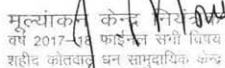 मूल्यांकन केन्द्र नियंत्रक
वर्ष 2017-18 फाईनल सभी विषय
शहीद कोतवाल धन सामुदायिक केन्द्र